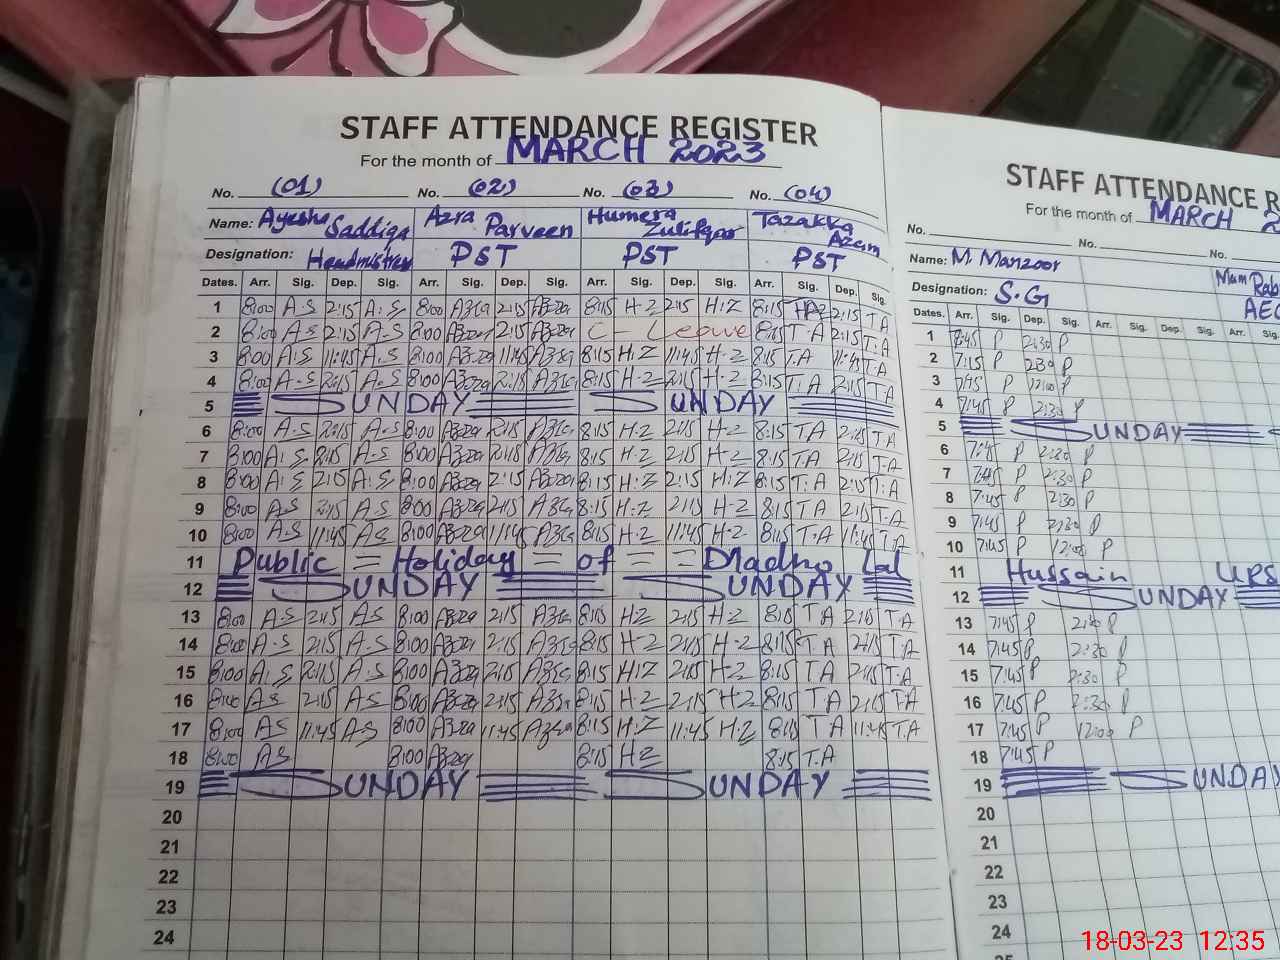 STAFF ATTENDANCE REGISTER
For the month of MARCH 2023
No. (01) No. (02) No. (03) No. (04)
Name: Ayesha Saddiqa Azra Parveen Humera Zulifqar Tazakka Azam
Designation: Headmistress PST PST PST
Dates. Arr. Sig. Dep. Sig. Arr. Sig. Dep. Sig. Arr. Sig. Dep. Sig. Arr. Sig. Dep. Sig.
1 8:00 A.S 2:15 A.S 8:00 Azra 2:15 Azra 8:15 H.Z 2:15 H.Z 8:15 T.A 2:15 T A
2 8:00 A S 2:15 A.S 8:00 Azra 2:15 Azra C - Leave 8:15 T.A 2:15 T.A
3 8:00 A.S 11:45 A.S 8:00 Azra 11:45 Azra 8:15 H.Z 11:45 H.Z 8:15 T.A 11:45 T.A
4 8:00 A.S 2:15 A.S 8:00 Azra 2:15 Azra 8:15 H.Z 2:15 H.Z 8:15 T.A 2:15 T.A
5 SUNDAY SUNDAY
6 8:00 A.S 2:15 A.S 8:00 Azra 2:15 Azra 8:15 H.Z 2:15 H.Z 8:15 T A 2:15 T.A
7 8:00 A.S 2:15 A.S 8:00 Azra 2:15 Azra 8:15 H.Z 2:15 H.Z 8:15 T.A 2:15 T.A
8 8:00 A.S 2:15 A.S 8:00 Azra 2:15 Azra 8:15 H.Z 2:15 H.Z 8:15 T.A 2:15 T.A
9 8:00 A S 2:15 A S 8:00 Azra 2:15 Azra 8:15 H.Z 2:15 H.Z 8:15 T A 2:15 T.A
10 8:00 A.S 11:45 A S 8:00 Azra 11:45 Azra 8:15 H.Z 11:45 H.Z 8:15 T A 11:45 T.A
11 Public = Holiday = of = = Madho Lal
12 SUNDAY SUNDAY
13 8:00 A.S 2:15 A S 8:00 Azra 2:15 Azra 8:15 H.Z 2:15 H.Z 8:15 T A 2:15 T.A
14 8:00 A.S 2:15 A.S 8:00 Azra 2:15 Azra 8:15 H.Z 2:15 H.Z 8:15 T A 2:15 T.A
15 8:00 A.S 2:15 A.S 8:00 Azra 2:15 Azra 8:15 H.Z 2:15 H.Z 8:15 T A 2:15 T.A
16 8:00 A S 2:15 A.S 8:00 Azra 2:15 Azra 8:15 H.Z 2:15 H.Z 8:15 T A 2:15 T.A
17 8:00 A S 11:45 A.S 8:00 Azra 11:45 Azra 8:15 H.Z 11:45 H.Z 8:15 T A 11:45 T.A
18 8:00 A S 8:00 Azra 8:15 H Z 8:15 T.A
19 SUNDAY SUNDAY
20
21
22
23
24
STAFF ATTENDANCE R
For the month of MARCH 2
No. No. No.
Name: M. Manzoor
Designation: S.G
Dates. Arr. Sig. Dep. Sig. Arr. Sig. Dep. Sig.
1 7:45 P 2:30 P
2 7:45 P 2:30 P
3 7:45 P 12:00 P
4 7:45 P 2:30 P
5 SUNDAY
6 7:45 P 2:30 P
7 7:45 P 2:30 P
8 7:45 P 2:30 P
9 7:45 P 2:30 P
10 7:45 P 12:00 P
11 Hussain URS
12 SUNDAY
13 7:45 P 2:30 P
14 7:45 P 2:30 P
15 7:45 P 2:30 P
16 7:45 P 2:30 P
17 7:45 P 12:00 P
18 7:45 P
19 SUNDAY
20
21
22
23
24
18-03-23 12:35